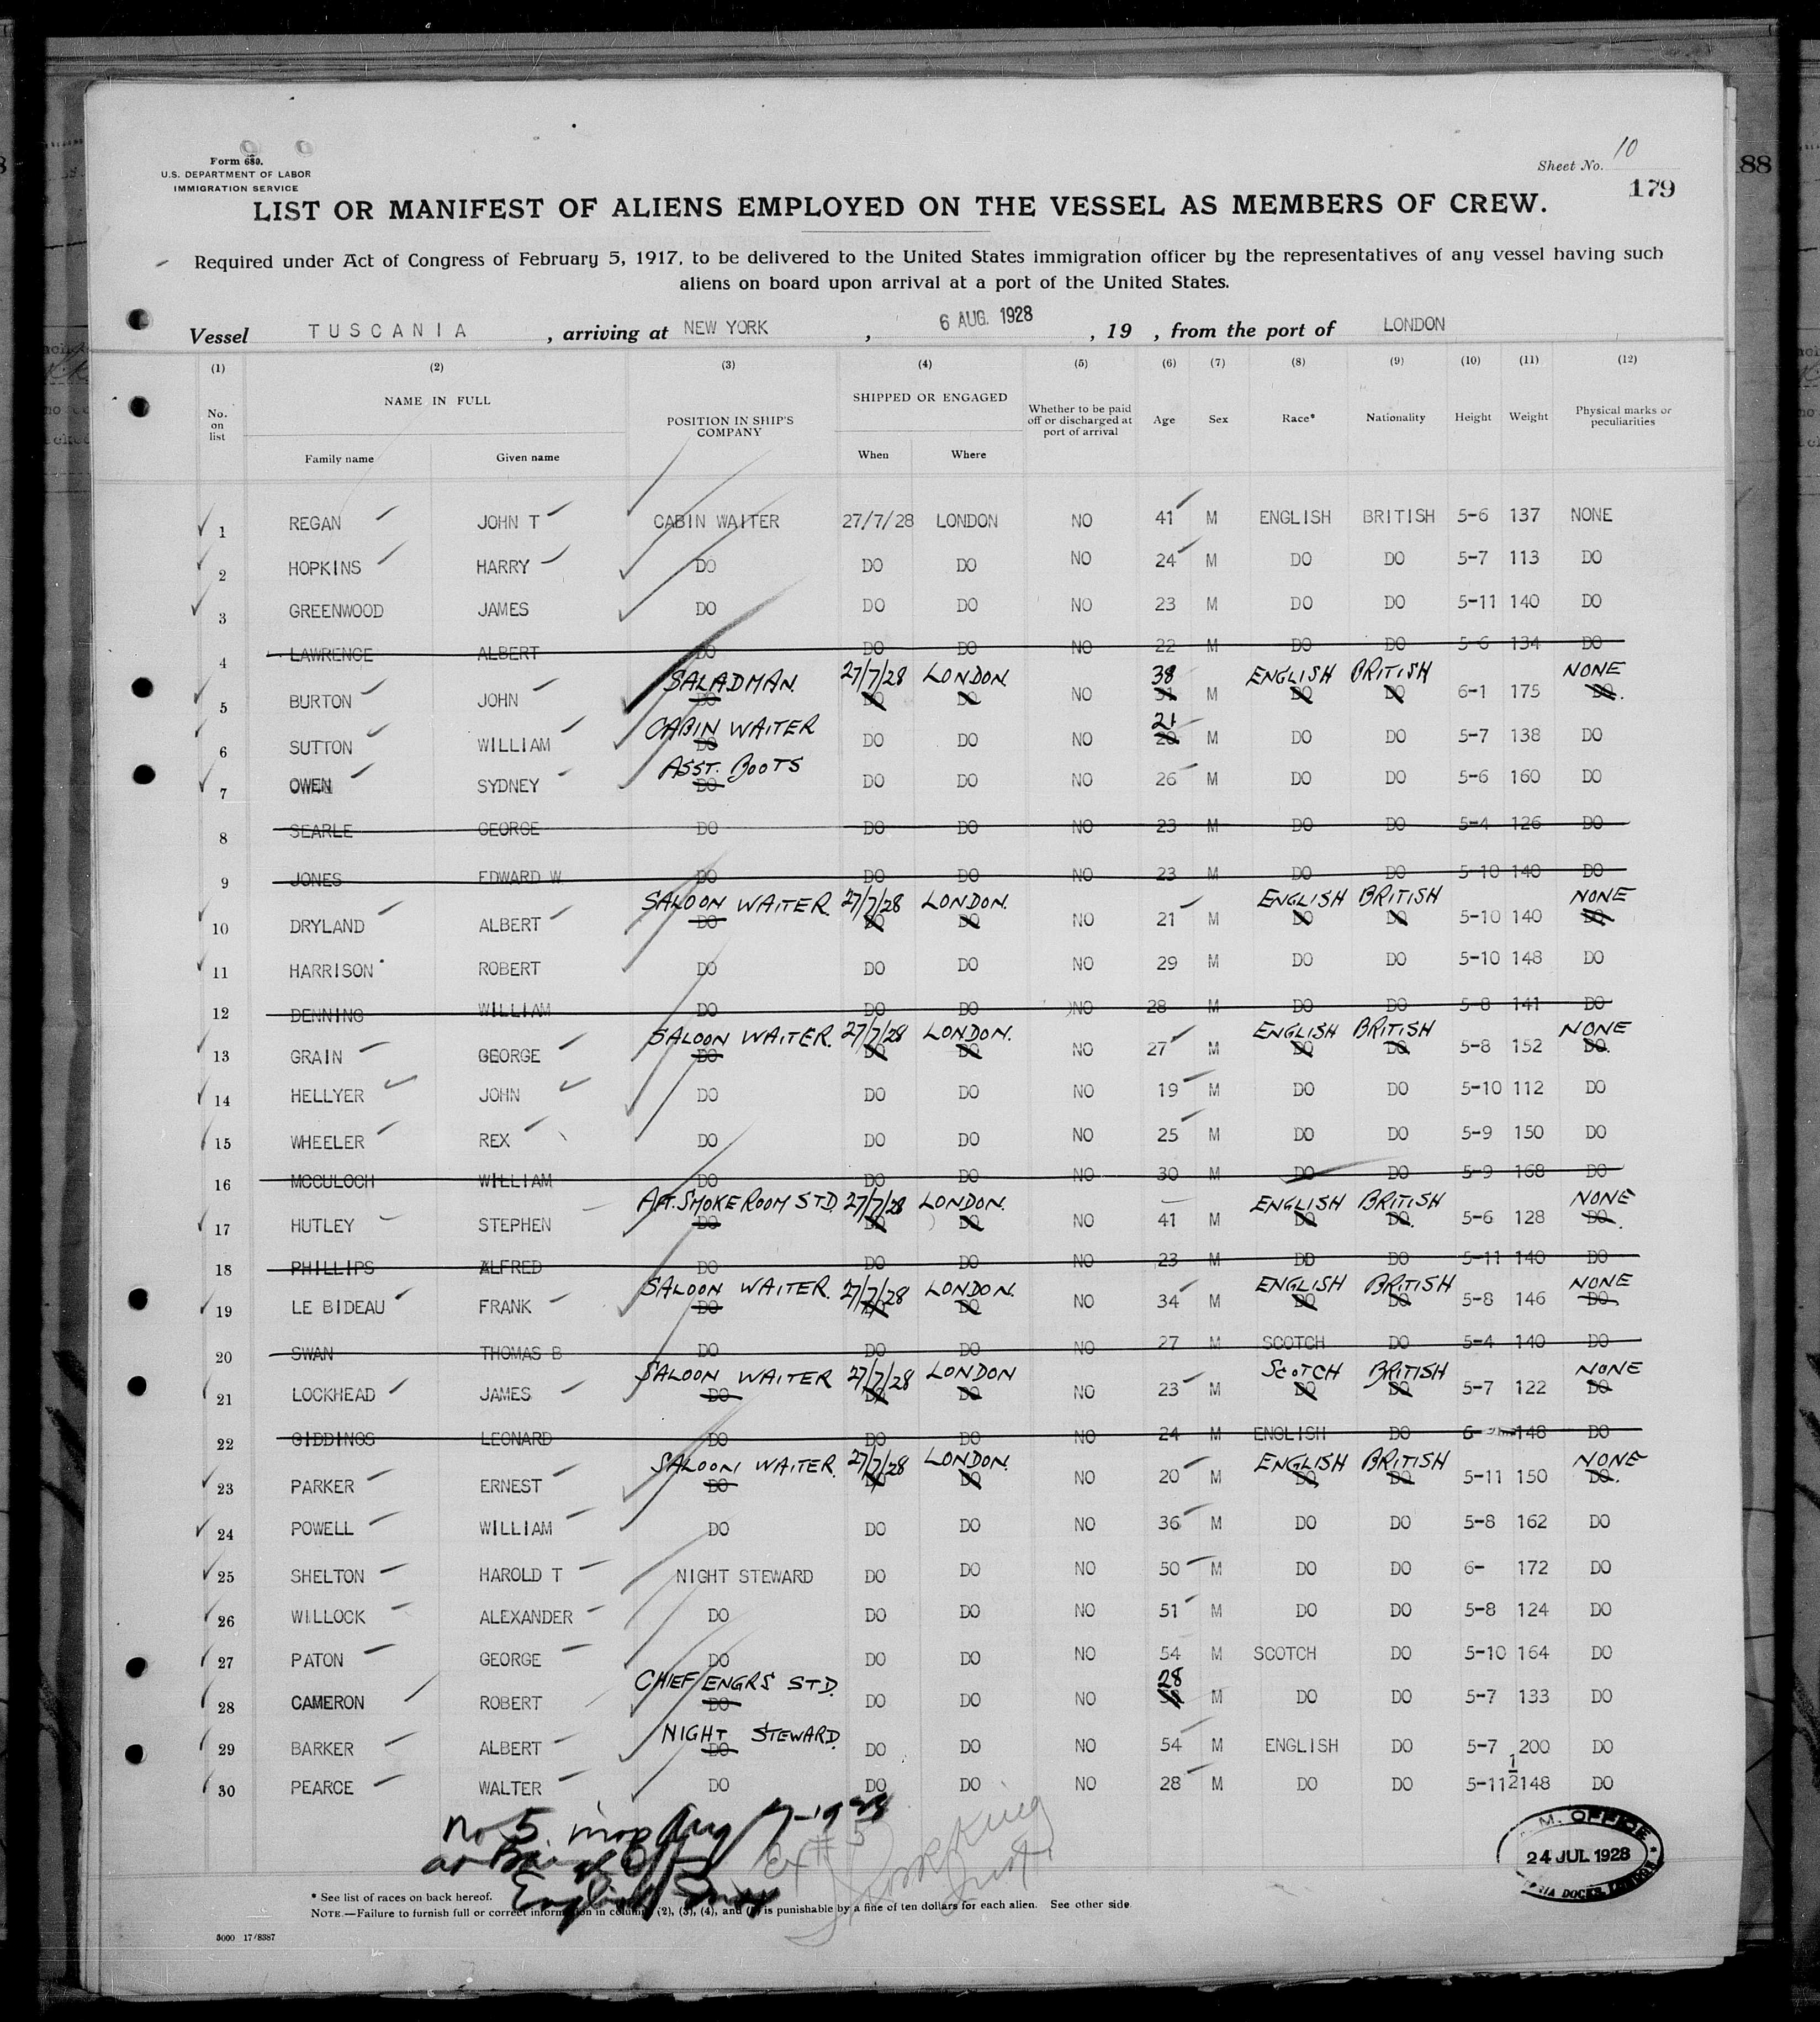 Form 680.
U.S. DEPARTMENT OF LABOR
IMMIGRATION SERVICE
Sheet No. 10
179
88
LIST OR MANIFEST OF ALIENS EMPLOYED ON THE VESSEL AS MEMBERS OF CREW.
Required under Act of Congress of February 5, 1917, to be delivered to the United States immigration officer by the representatives of any vessel having such
aliens on board upon arrival at a port of the United States.
Vessel TUSCANIA, arriving at NEW YORK, 6 AUG. 1928, 19 , from the port of LONDON
(1) (2) (3) (4) (5) (6) (7) (8) (9) (10) (11) (12)
No. on list NAME IN FULL POSITION IN SHIP'S COMPANY SHIPPED OR ENGAGED Whether to be paid off or discharged at port of arrival Age Sex Race* Nationality Height Weight Physical marks or peculiarities
Family name Given name When Where
1 REGAN JOHN T CABIN WAITER 27/7/28 LONDON NO 41 M ENGLISH BRITISH 5-6 137 NONE
2 HOPKINS HARRY DO DO DO NO 24 M DO DO 5-7 113 DO
3 GREENWOOD JAMES DO DO DO NO 23 M DO DO 5-11 140 DO
4 LAWRENCE ALBERT DO DO DO NO 22 M DO DO 5-6 134 DO
SALADMAN 27/7/28 LONDON 38 ENGLISH BRITISH NONE
5 BURTON JOHN DO DO DO NO 31 M DO DO 6-1 175 DO.
CABIN WAITER 21
6 SUTTON WILLIAM DO DO DO NO 20 M DO DO 5-7 138 DO
ASST. BOOTS
7 OWEN SYDNEY DO DO DO NO 26 M DO DO 5-6 160 DO
8 SEARLE GEORGE DO DO DO NO 23 M DO DO 5-4 126 DO
9 JONES EDWARD W DO DO DO NO 23 M DO DO 5-10 140 DO
SALOON WAITER. 27/7/28 LONDON. ENGLISH BRITISH NONE
10 DRYLAND ALBERT DO DO DO NO 21 M DO DO 5-10 140 DO
11 HARRISON ROBERT DO DO DO NO 29 M DO DO 5-10 148 DO
12 DENNING WILLIAM DO DO DO NO 28 M DO DO 5-8 141 DO
SALOON WAITER. 27/7/28 LONDON. ENGLISH BRITISH NONE
13 GRAIN GEORGE DO DO DO NO 27 M DO DO 5-8 152 DO.
14 HELLYER JOHN DO DO DO NO 19 M DO DO 5-10 112 DO
15 WHEELER REX DO DO DO NO 25 M DO DO 5-9 150 DO
16 MCCULOCH WILLIAM DO DO DO NO 30 M DO DO 5-9 168 DO
AFT. SMOKE ROOM STD. 27/7/28 LONDON. ENGLISH BRITISH NONE
17 HUTLEY STEPHEN DO DO DO NO 41 M DO DO. 5-6 128 DO.
18 PHILLIPS ALFRED DO DO DO NO 23 M DD DO 5-11 140 DO
SALOON WAITER. 27/7/28 LONDON. ENGLISH BRITISH NONE
19 LE BIDEAU FRANK DO DO DO NO 34 M DO DO 5-8 146 DO
20 SWAN THOMAS B DO DO DO NO 27 M SCOTCH DO 5-4 140 DO
SALOON WAITER 27/7/28 LONDON SCOTCH BRITISH NONE
21 LOCKHEAD JAMES DO DO DO NO 23 M DO DO 5-7 122 DO
22 GIDDINGS LEONARD DO DO DO NO 24 M ENGLISH DO 6- 148 DO
SALOON WAITER. 27/7/28 LONDON. ENGLISH BRITISH NONE
23 PARKER ERNEST DO DO DO NO 20 M DO DO 5-11 150 DO.
24 POWELL WILLIAM DO DO DO NO 36 M DO DO 5-8 162 DO
25 SHELTON HAROLD T NIGHT STEWARD DO DO NO 50 M DO DO 6- 172 DO
26 WILLOCK ALEXANDER DO DO DO NO 51 M DO DO 5-8 124 DO
27 PATON GEORGE DO DO DO NO 54 M SCOTCH DO 5-10 164 DO
CHIEF ENGRS STD. 28
28 CAMERON ROBERT DO DO DO NO M DO DO 5-7 133 DO
NIGHT STEWARD.
29 BARKER ALBERT DO DO DO NO 54 M ENGLISH DO 5-7 200 DO
30 PEARCE WALTER DO DO DO NO 28 M DO DO 5-11 1/2 148 DO
No 5 Aug 7-1928
Ex # 5
English
M. OFFICE
24 JUL 1928
DOCKS, LONDON
* See list of races on back hereof.
NOTE.—Failure to furnish full or correct information in columns (2), (3), (4), and is punishable by a fine of ten dollars for each alien. See other side.
5000 17/8387